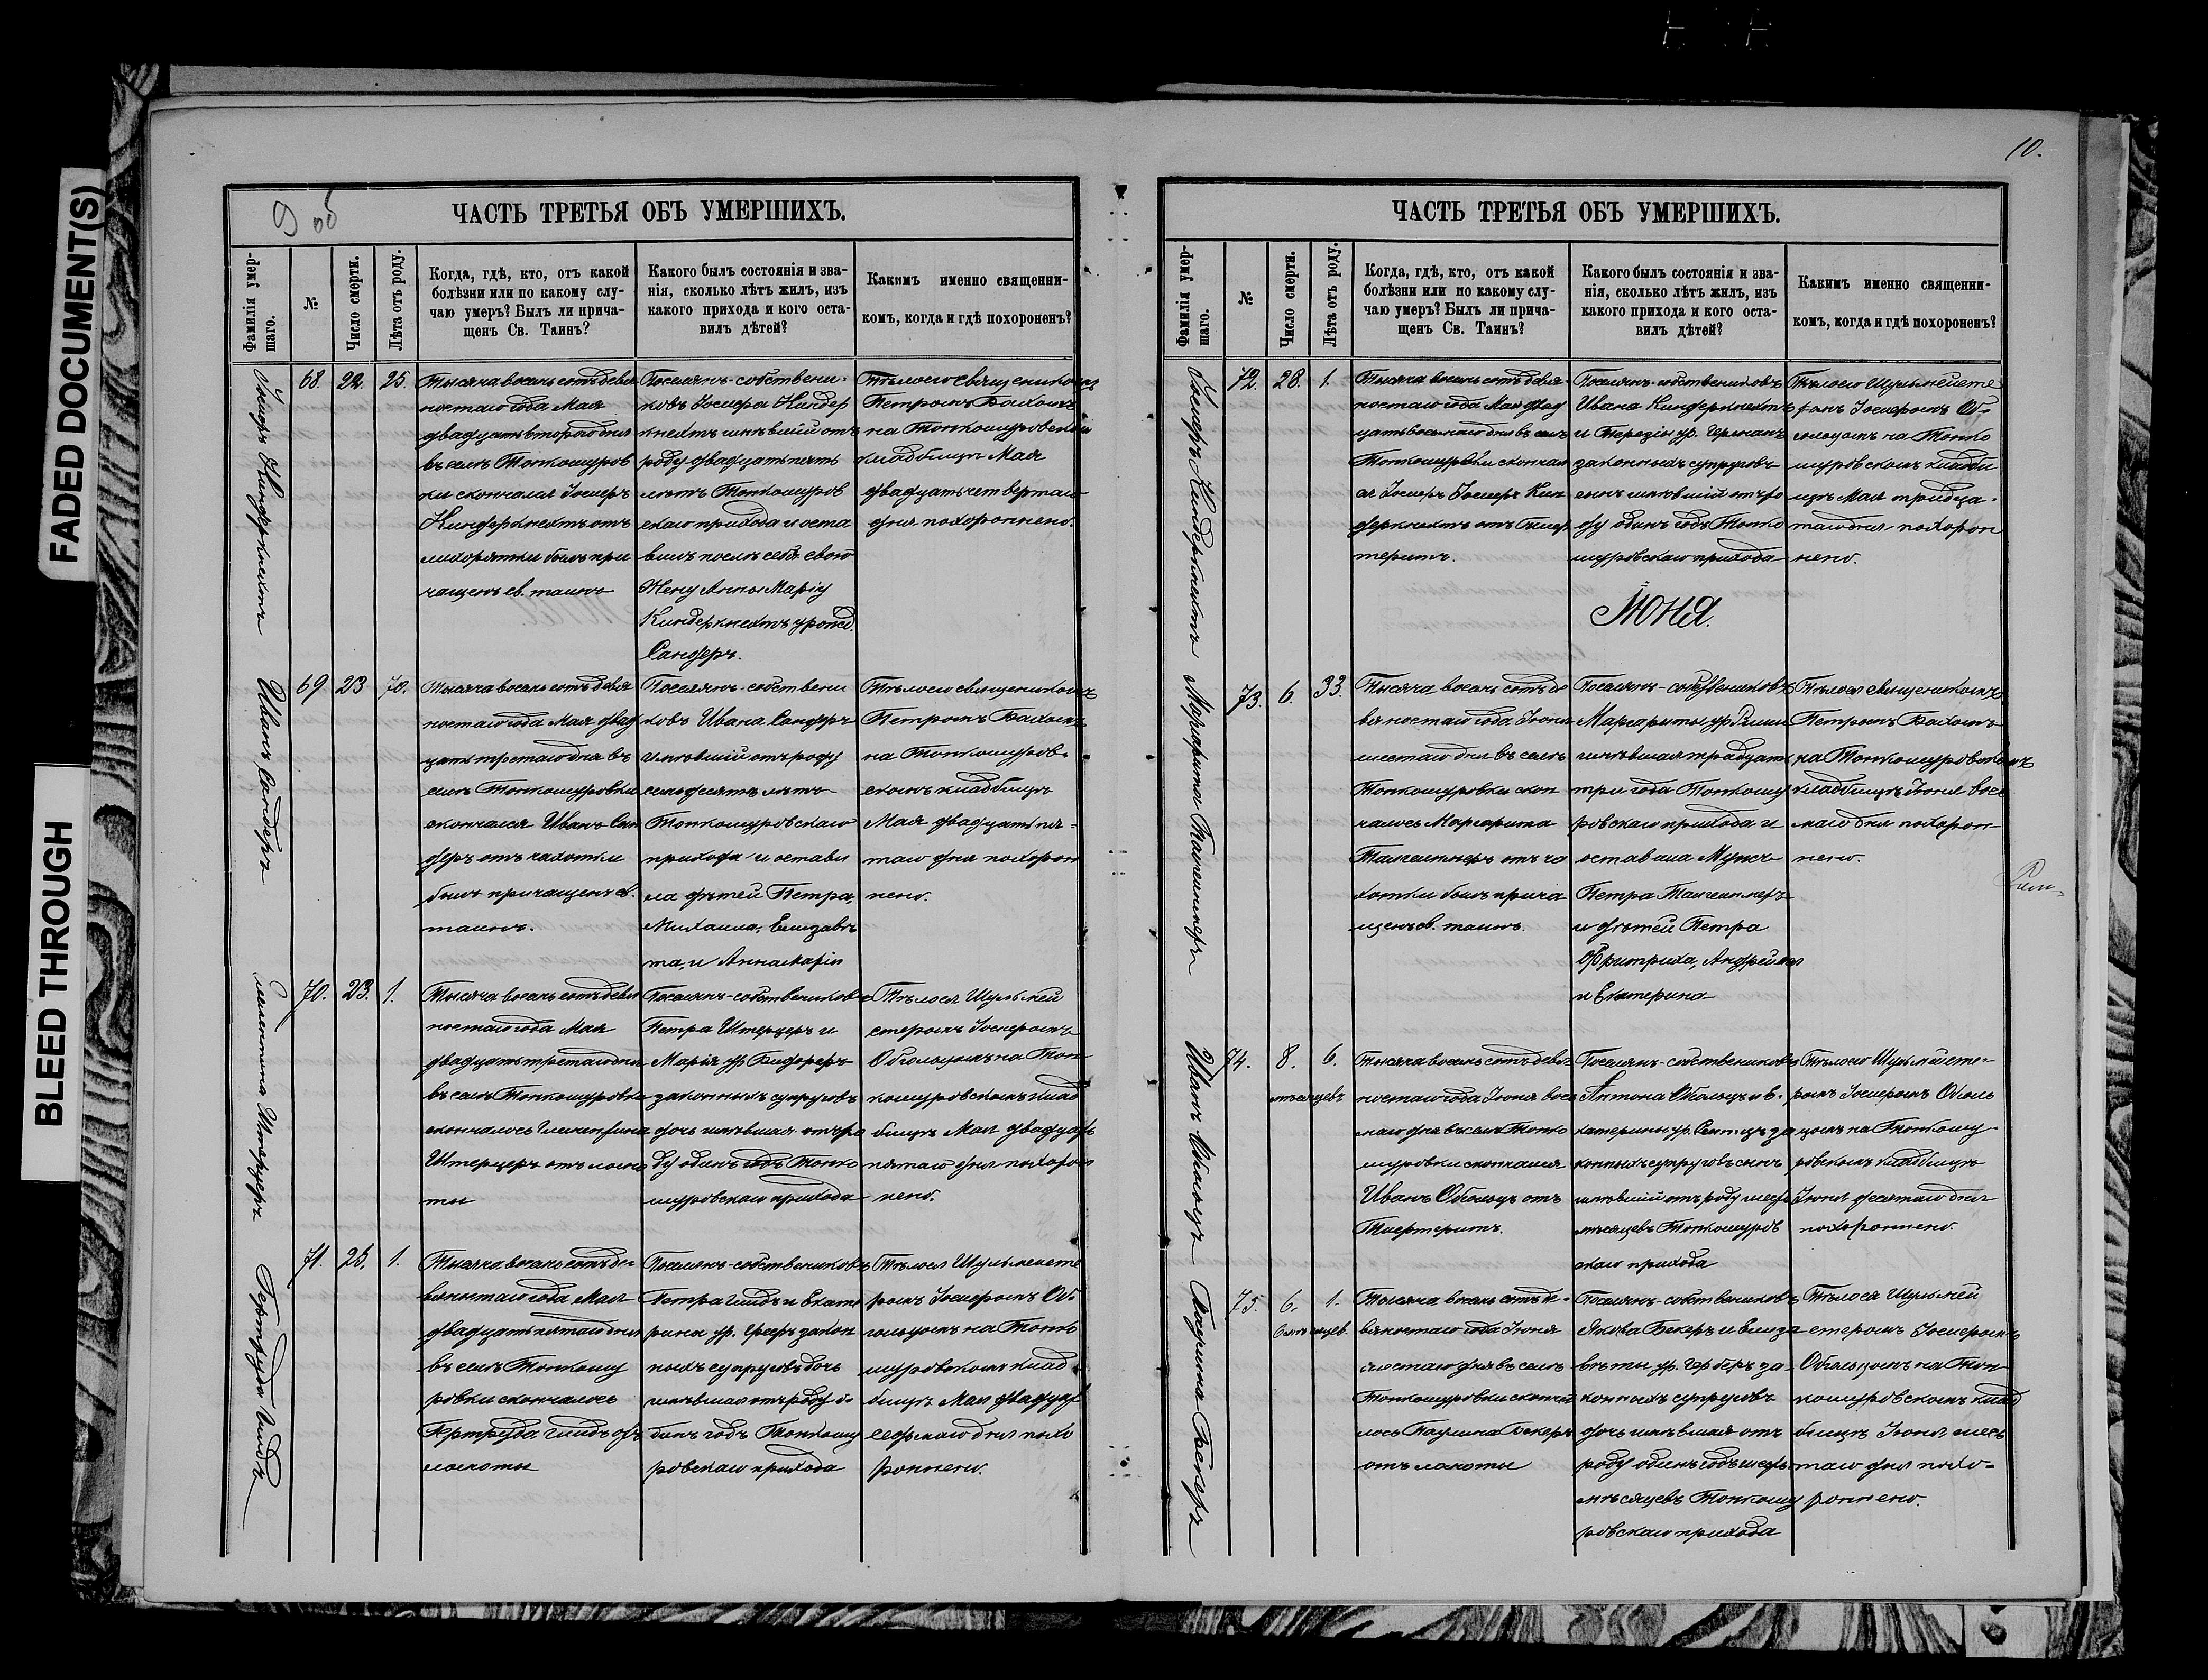 FADED DOCUMENT(S)
BLEED THROUGH
9 об
ЧАСТЬ ТРЕТЬЯ ОБЪ УМЕРШИХЪ.
Фамилія умер-
шаго.
№
Число смерти.
Лѣта отъ роду.
Когда, гдѣ, кто, отъ какой
болѣзни или по какому слу-
чаю умеръ? Былъ ли прича-
щенъ Св. Таинъ?
Какого былъ состоянія и зва-
нія, сколько лѣтъ жилъ, изъ
какого прихода и кого оста-
вилъ дѣтей?
Какимъ именно священни-
комъ, когда и гдѣ похороненъ?
Іосифъ Киндеркнехтъ
68. 22. 25.
Тысяча восемь сотъ девя
ностаго года Мая
двадцать втораго дня
въ селѣ Топкошуров
ки скончался Іосифъ
Киндеркнехтъ отъ
лихорятки былъ при
чащенъ св. таинъ
Поселянъ-собствени-
ковъ Іосифа Киндер
кнехтъ имѣвшій отъ
роду двадцать пять
лѣтъ Топкошуров
скаго прихода и оста
вилъ послѣ себя свою
Жену Анны Марію
Киндеркнехтъ урожд.
Сандеръ.
Тѣлосіо священикомъ
Петромъ Бахомъ
на Топкошуровскомъ
кладбищѣ Мая
двадцать четвертаго
дня похороннено.
Иванъ Сандеръ
69 23 70.
Тысяча восемь сотъ девя
ностаго года Мая двад
цать третаго дня въ
селѣ Топкошуровки
скончался Иванъ Сан
деръ отъ чахотки
былъ причащенъ св.
таинъ.
Поселянъ-собствени
ковъ Ивана Сандеръ
имѣвшій отъ роду
семьдесятъ лѣтъ
Топкошуровскаго
прихода и остави
ла дѣтей Петра,
Михаила, Елизавѣ
та, и Аннамарія
Тѣлосіо священикомъ
Петромъ Бахомъ
на Топкошуров-
скомъ кладбищѣ
Мая двадцать пя-
таго дня похорон
нено.
70. 23. 1.
Тысяча восемь сотъ девя
ностаго года Мая
двадцать третаго дня
въ селѣ Топкошуровки
скончалось Клементина
Штерцеръ отъ ломо
ты
Поселянъ-собствениковъ
Петра Штерцеръ и
законныхъ супруговъ
дочь имѣвшая отъ ро
ду одинъ годъ Топко
шуровскаго прихода
Тѣлосія Шульмей
стеромъ Іосифомъ
Обгольцомъ на Топ
кошуровскомъ клад
бищѣ Мая двадцать
пятаго дня похорон
нено.
71. 25. 1.
Тысяча восемь сотъ де-
вяностаго года Мая
двадцать пятаго дня
въ селѣ Топкошу
ровки скончалось
Поселянъ-собствениковъ
законн
ныхъ супруговъ дочь
имѣвшая отъ роду о-
динъ годъ Топкошу
ровскаго прихода
Тѣлосія Шульмейсте
ромъ Іосифомъ Об-
гольцомъ на Топко
шуровскомъ клад
бищѣ Мая двадцать
седьмаго дня похо
роннено.
10.
ЧАСТЬ ТРЕТЬЯ ОБЪ УМЕРШИХЪ.
Фамилія умер-
шаго.
№
Число смерти.
Лѣта отъ роду.
Когда, гдѣ, кто, отъ какой
болѣзни или по какому слу-
чаю умеръ? Былъ ли прича-
щенъ Св. Таинъ?
Какого былъ состоянія и зва-
нія, сколько лѣтъ жилъ, изъ
какого прихода и кого оста-
вилъ дѣтей?
Какимъ именно священни-
комъ, когда и гдѣ похороненъ?
Іосифъ Киндеркнехтъ
72. 28. 1.
Тысяча восемь сотъ девя-
ностаго года Мая двад
цать восьмаго дня въ селѣ
Топкошуровки скончал
ся Іосифъ Іосифъ Кин
деркнехтъ отъ Тиф
терить.
Поселянъ-собствениковъ
Ивана Киндеркнехтъ
и Терезіи ур.
законныхъ супруговъ
сынъ имѣвшій отъ ро
ду одинъ годъ Топко
шуровскаго прихода
Тѣлосіо Шульмейсте
ромъ Іосифомъ Об-
гольцомъ на Топко
шуровскомъ кладби
щѣ Мая тридца-
таго дня похорон
нено.
Іюня.
73. 6. 33.
Тысяча восемь сотъ де
вяностаго года Іюня
шестаго дня въ селѣ
Топкошуровки скон
чалось Маргарита
отъ ча
хотки былъ прича
щенъ св. таинъ.
Поселянъ-собствениковъ
Маргариты ур
имѣвшая тридцать
три года Топкошу
ровскаго прихода и
оставила Мужа
Петра
и дѣтей Петра
Фритриха, Андрей
и Екатерина
Тѣлосія священикомъ
Петромъ Бахомъ
на Топкошуровскомъ
кладбищѣ Іюня вось
маго дня похорон
нено.
Иванъ Обгольцъ
74. 8. 6.
мѣсяцевъ
Тысяча восемь сотъ девя
ностаго года Іюня вось
маго дня въ селѣ Топко
шуровки скончался
Иванъ Обгольцъ отъ
Тифтеритъ.
Поселянъ-собствениковъ
Антона Обгольцъ и Е-
катерины ур. за
конныхъ супруговъ сынъ
имѣвшій отъ роду шесть
мѣсяцевъ Топкошуров
скаго прихода
Тѣлосіо Шульмейсте-
ромъ Іосифомъ Обголь
цомъ на Топкошу-
ровскомъ кладбищѣ
Іюня десятаго дня
похороннено.
Паулина Бекеръ
75. 6. 1.
6 мѣсяцев.
Тысяча восемь сотъ де-
вяностаго года Іюня
шестаго дня въ селѣ
Топкошуровки скон
лось Паулина Бекеръ
отъ ломоты
Поселянъ-собствениковъ
Якова Бекеръ и Елиза
вѣты ур. Герберъ за-
конныхъ супруговъ
дочь имѣвшая отъ
роду одинъ годъ шесть
мѣсяцевъ Топкошу
ровскаго прихода
Тѣлосія Шульмей
стеромъ Іосифомъ
Обгольцомъ на Топ
кошуровскомъ клад
бищѣ Іюня
таго дня похо-
роннено.